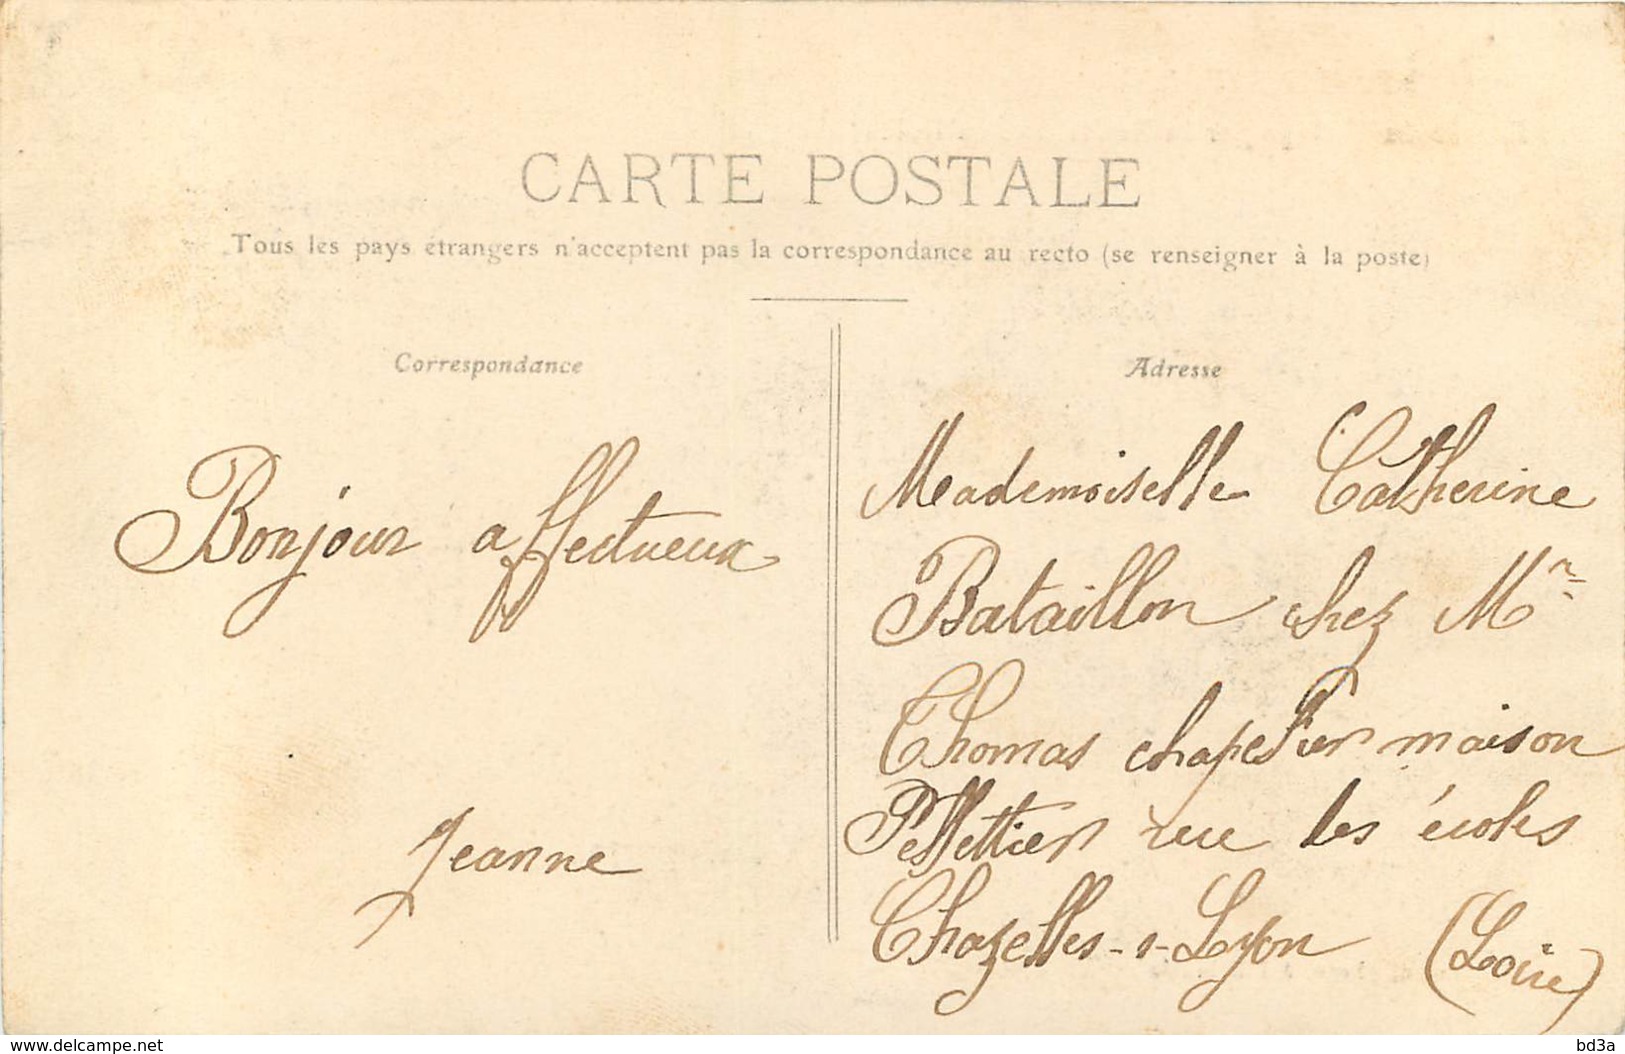 CARTE POSTALE
Tous les pays étrangers n'acceptent pas la correspondance au recto (se renseigner à la poste)
Correspondance
Bonjour affectueux
Jeanne
Adresse
Mademoiselle Catherine
Bataillon chez Mr
Thomas chapelier maison
Pellettier rue des écoles
Chazelles-s-Lyon (Loire)
www.delcampe.net
bd3a